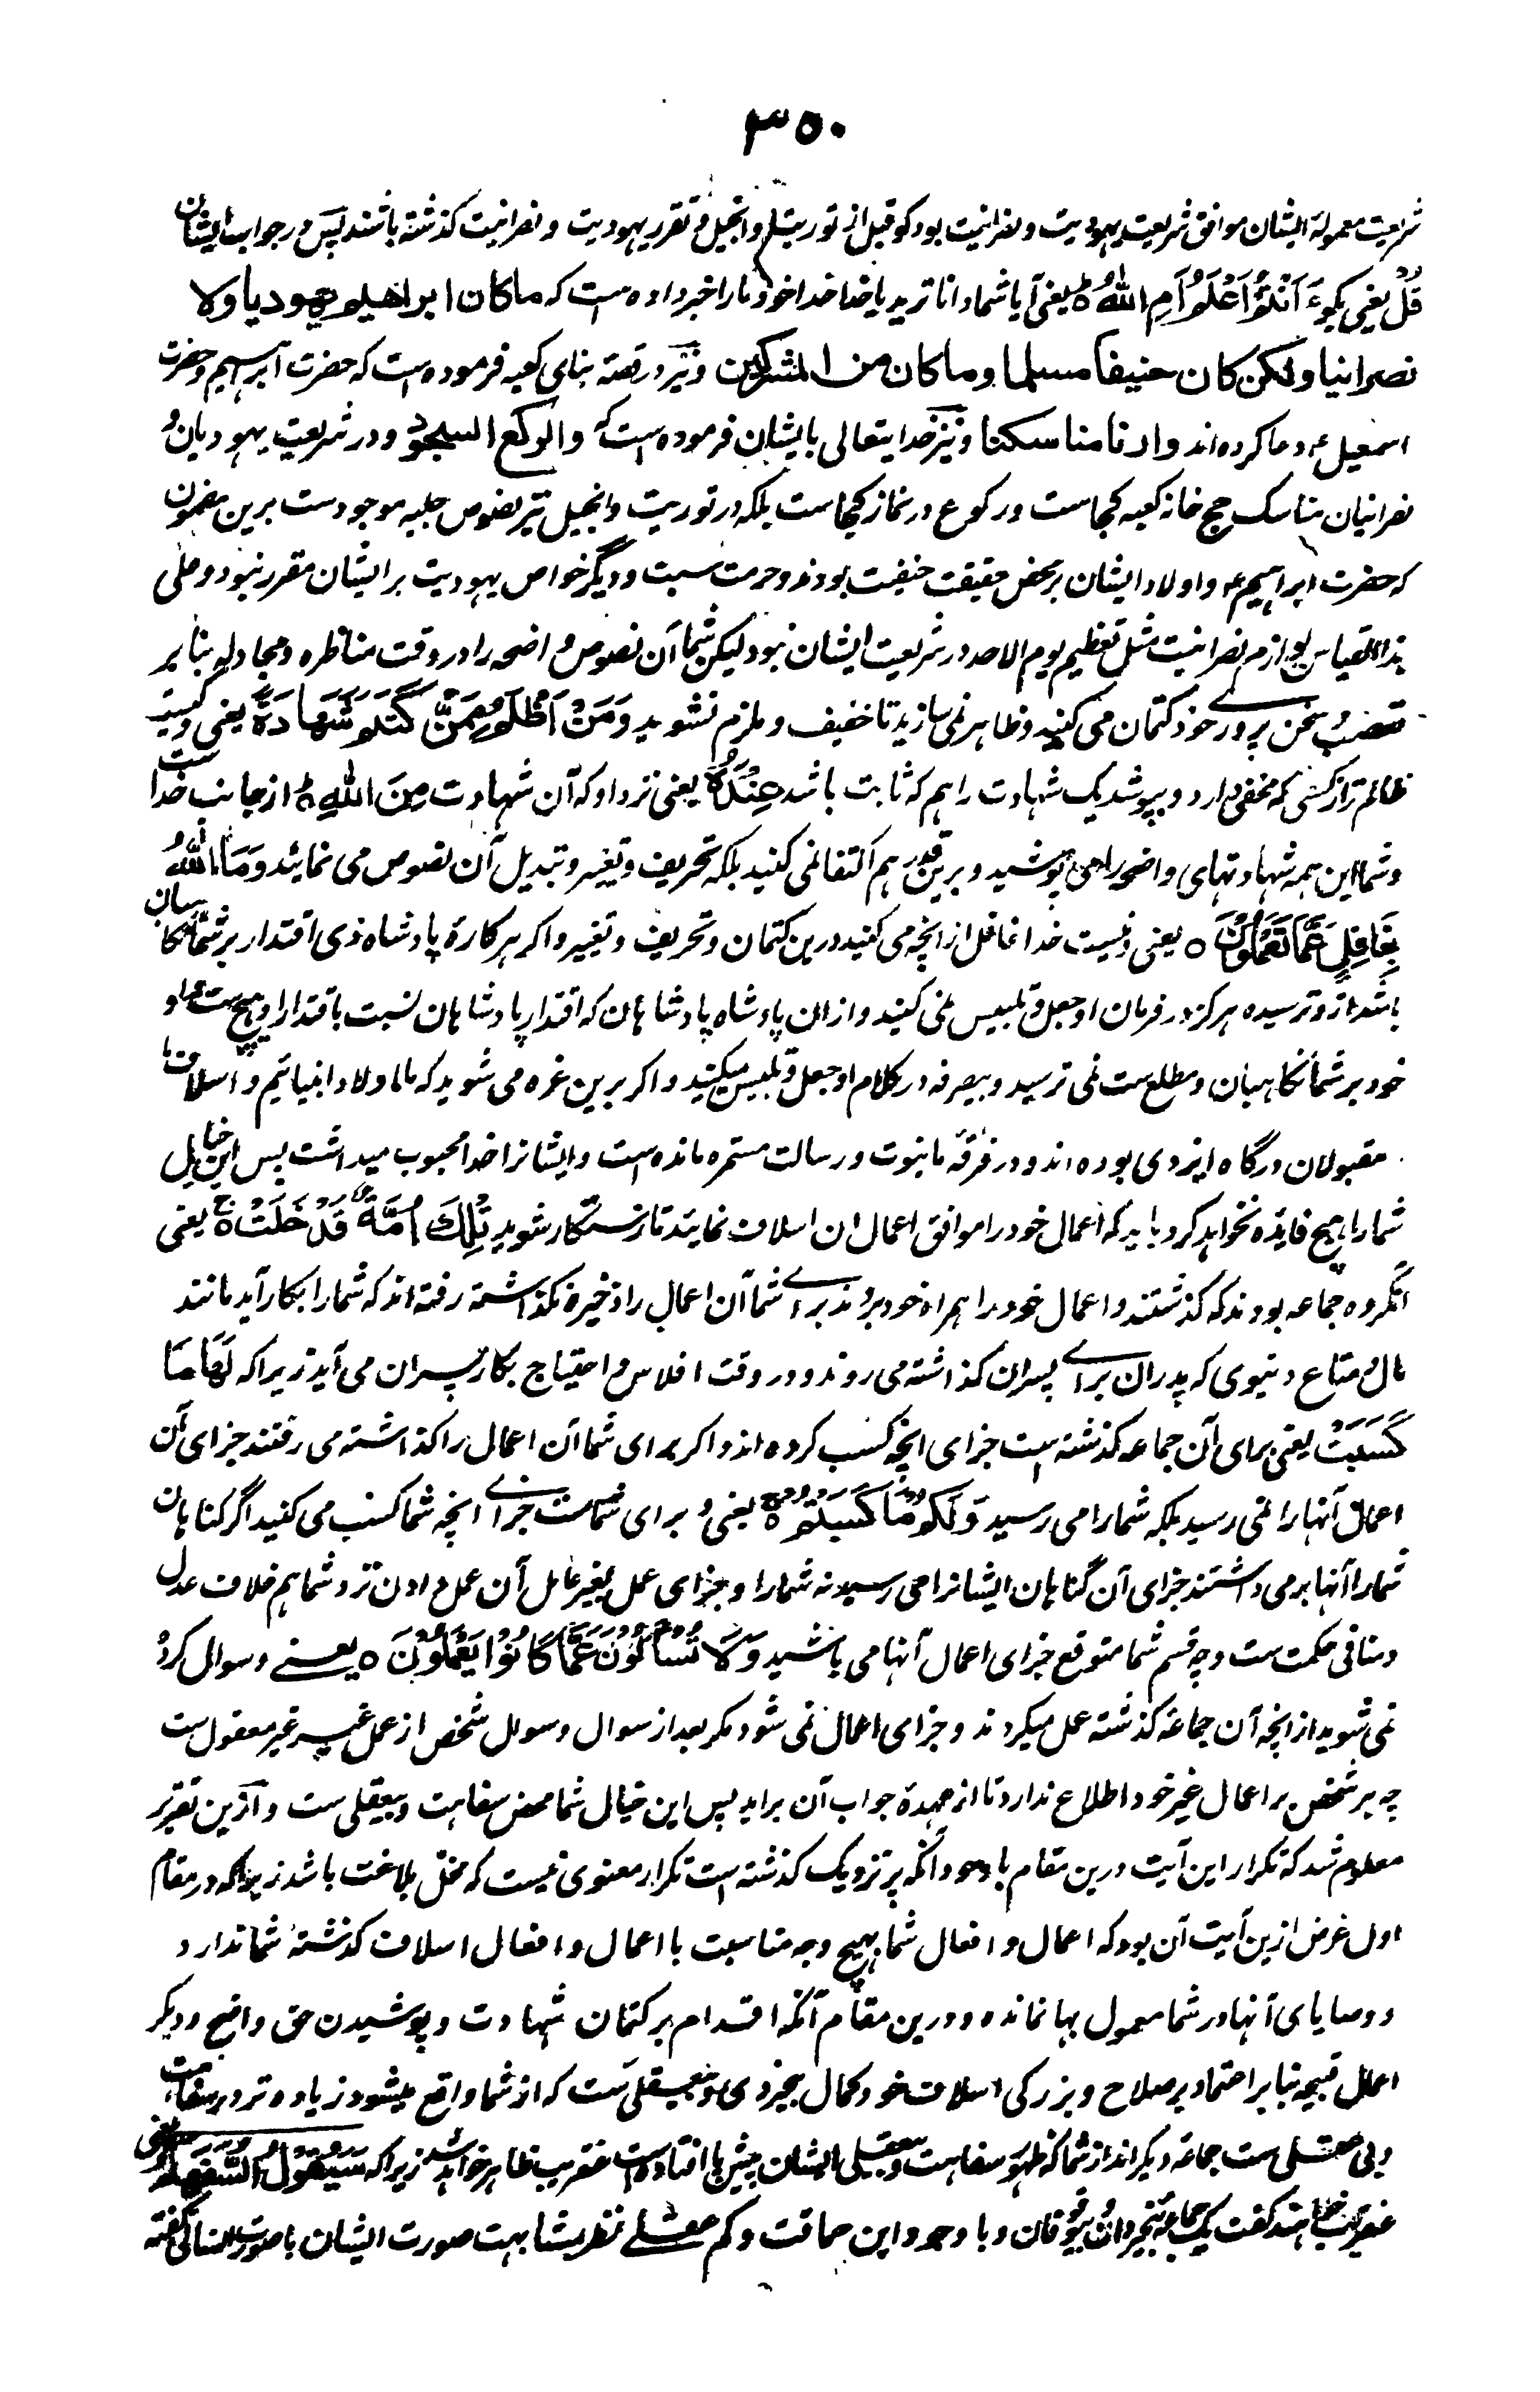 ۳۵۰
شریعت معمولهٔ ایشان موافق شریعت یهودیت و نصرانیت بود گو قبل از توریت و انجیل و تقرر یهودیت و نصرانیت گذشته باشند پس در جواب ایشان
قُلْ یعنی بگو ءَاَنْتُمْ اَعْلَمُ اَمِ اللّٰهُ ط یعنی آیا شما داناترید یا خدا خدا خود ما را خبر داده است که ما کان ابراهیم یهودیا ولا
نصرانیا ولکن کان حنیفا مسلما وما کان من المشرکین و نیز در قصهٔ بنای کعبه فرموده است که حضرت ابراهیم و حضرت
اسمعیل ع دعا کرده اند وارنا مناسکنا و نیز خدایتعالی بایشان فرموده است که والرکع السجود و در شریعت یهودیان و
نصرانیان مناسک حج خانه کعبه کجاست و رکوع در نماز کجاست بلکه در توریت و انجیل نیز نصوص جلیه موجودست برین مضمون
که حضرت ابراهیم ع و اولاد ایشان بر محض حقیقت حنفیت بودند و حرمت سبت و دیگر خواص یهودیت بر ایشان مقرر نبود و علی
هذا القیاس لوازم نصرانیت مثل تعظیم یوم الاحد در شریعت ایشان نبود لیکن شما آن نصوص واضحه را در وقت مناظره و مجادله بنابر
تعصب و سخن پروری خود کتمان می کنید و ظاهر نمی سازید تا خفیف و ملزم نشوید وَمَنْ اَظْلَمُ مِمَّنْ كَتَمَ شَهَادَةً یعنی و کیست
ظالم تر از کسی که مخفی دارد و بپوشد یک شهادت را هم که ثابت باشد عِنْدَهٗ یعنی نزد او که آن شهادت مِنَ اللّٰهِ ط از جانب خداست
و شما این همه شهادتهای واضحه را می پوشید و برین قدر هم اکتفا نمی کنید بلکه تحریف و تغییر و تبدیل آن نصوص می نمائید وَمَا اللّٰهُ
بِغَافِلٍ عَمَّا تَعْمَلُوْنَ ۝ یعنی و نیست خدا غافل از انچه می کنید درین کتمان و تحریف و تغییر و اگر هرکارهٔ پادشاه ذی اقتدار بر شما نگاهبان
باشد ازو ترسیده هرگز در فرمان او جعل و تلبیس نمی کنید و ازان پادشاه پادشاهان که اقتدار پادشاهان نسبت باقتدار او هیچ ست و او
خود بر شما نگاهبان و مطلع ست نمی ترسید و بیصرفه در کلام او جعل و تلبیس میکنید و اگر برین غره می شوید که ما اولاد انبیائیم و اسلاف ما
مقبولان درگاه ایزدی بوده اند و در فرقهٔ ما نبوت و رسالت مستمره مانده است و ایشانرا خدا محبوب میداشت پس این خیال
شما را هیچ فایده نخواهد کرد باید که اعمال خود را موافق اعمال ان اسلاف نمایند تا رستگار شوید تِلْكَ اُمَّةٌ قَدْ خَلَتْ ج یعنی
آنگروه جماعه بودند که گذشتند و اعمال خود را همراه خود بردند برای شما آن اعمال را ذخیره نگذاشته رفته اند که شما را بکار آید مانند
مال و متاع دنیوی که پدران برای پسران گذاشته می روند و در وقت افلاس و احتیاج بکار پسران می آید زیرا که لَهَا مَا
كَسَبَتْ یعنی برای آن جماعه گذشته است جزای انچه کسب کرده اند و اگر برای شما آن اعمال را گذاشته می رفتند جزای آن
اعمال آنها را نمی رسید بلکه شما را می رسید وَلَكُمْ مَا كَسَبْتُمْ ج یعنی و برای شماست جزای انچه شما کسب می کنید اگر گناهان
شما را آنها برمی داشتند جزای آن گناهان ایشانرا می رسید نه شما را و جزای عمل بغیر عامل آن عمل دادن نزد شما هم خلاف عدل
و منافی حکمت ست و چه قسم شما متوقع جزای اعمال آنها می باشید وَلَا تُسْـَٔلُوْنَ عَمَّا كَانُوْا يَعْمَلُوْنَ ۝ یعنی و سوال کرده
نمی شوید از انچه آن جماعهٔ گذشته عمل میکردند و جزای اعمال نمی شود مگر بعد از سوال و سوال شخص از عمل غیر غیر معقول ست
چه هر شخص بر اعمال غیر خود اطلاع ندارد تا از عهدهٔ جواب آن براید پس این خیال شما محض سفاهت و بیعقلی ست و ازین تقریر
معلوم شد که تکرار این آیت درین مقام با وجود آنکه پر نزدیک گذشته است تکرار معنوی نیست که مخل بلاغت باشد زیرا که در مقام
اول غرض ازین آیت آن بود که اعمال و افعال شما بهیچ وجه مناسبت با اعمال و افعال اسلاف گذشتهٔ شما ندارد
و وصایای آنها در شما معمول بها نمانده و درین مقام آنکه اقدام بر کتمان شهادت و پوشیدن حق واضح و دیگر
اعمال قبیحه بنابر اعتماد بر صلاح و بزرگی اسلاف خود کمال بیخردی و بیعقلی ست که از شما واقع میشود زیاده تر در سفاهت
و بی عقلی ست جماعهٔ دیگر اند از شما که ظهور سفاهت و بیعقلی ایشان پیش پا افتاده است عنقریب ظاهر خواهد شد زیرا که سَيَقُوْلُ السُّفَهَاءُ یعنی
عنقریب خواهند گفت یک جماعهٔ بیخردان و بیوقوفان و با وجود این حماقت و کم عقلی نظر بمشابهت صورت ایشان با صورت انسانی گفته